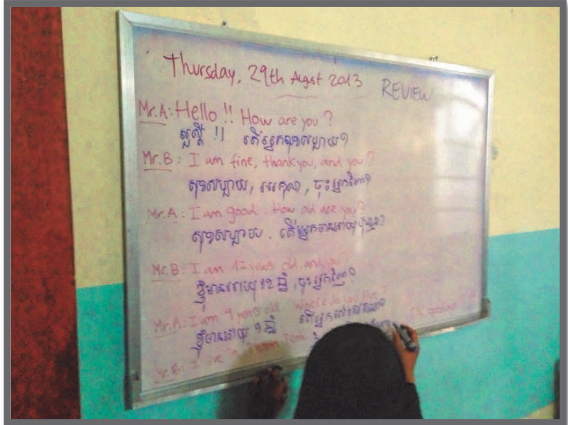 Thursday, 29th Agst 2013 REVIEW
Mr.A: Hello !! How are you ?
សួស្តី !! តើអ្នកសុខសប្បាយ?
Mr.B: I am fine, thank you, and you ?
សុខសប្បាយ, អរគុណ, ចុះអ្នកវិញ?
Mr.A: I am good. How old are you?
សុខសប្បាយ. តើអ្នកមានអាយុប៉ុន្មាន?
Mr.B: I am 12 years old, and you?
ខ្ញុំមានអាយុ ១២ ឆ្នាំ, ចុះអ្នកវិញ?
Mr.A: I am 9 years old. do you live ?
ខ្ញុំមានអាយុ ៩ ឆ្នាំ តើអ្នករស់នៅឯណា?
Mr.B: I live in